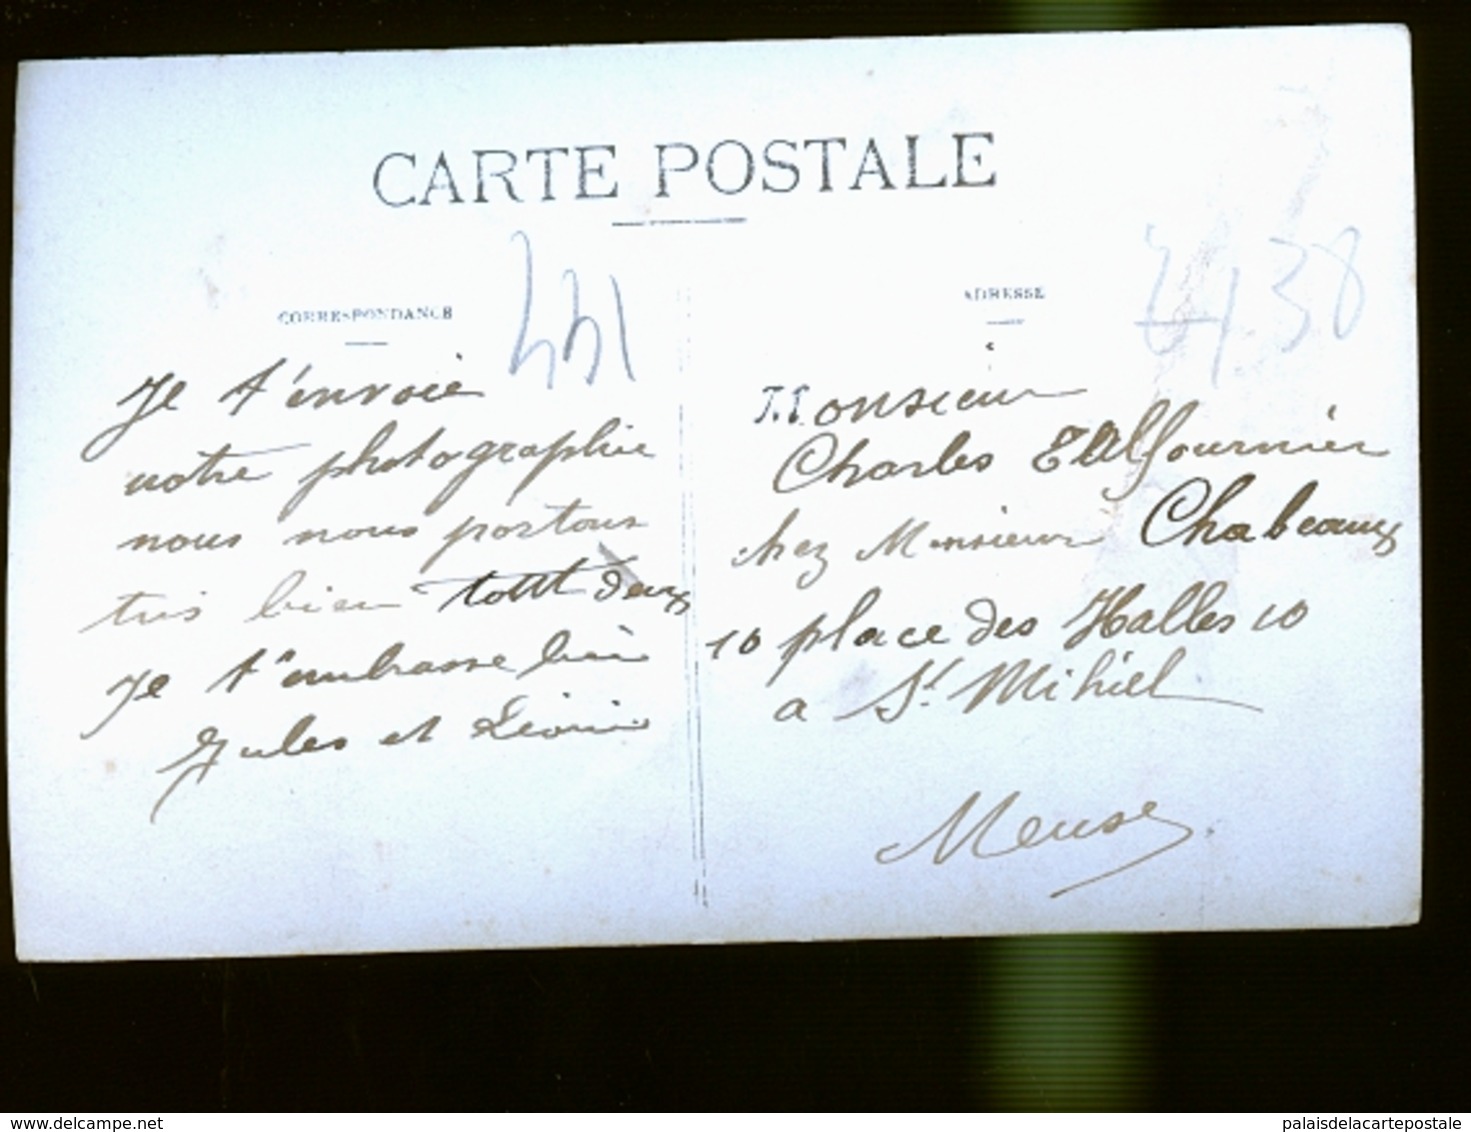 CARTE POSTALE
CORRESPONDANCE
Je t'envoie
notre photographie
nous nous portons
très bien tout deux
Je t'embrasse bien
Jules et Léonie
ADRESSE
Monsieur
Charles
chez Monsieur Chabeaux
10 place des Halles 10
a St Mihiel
Meuse
delcampe.net
palaisdelacartepostale